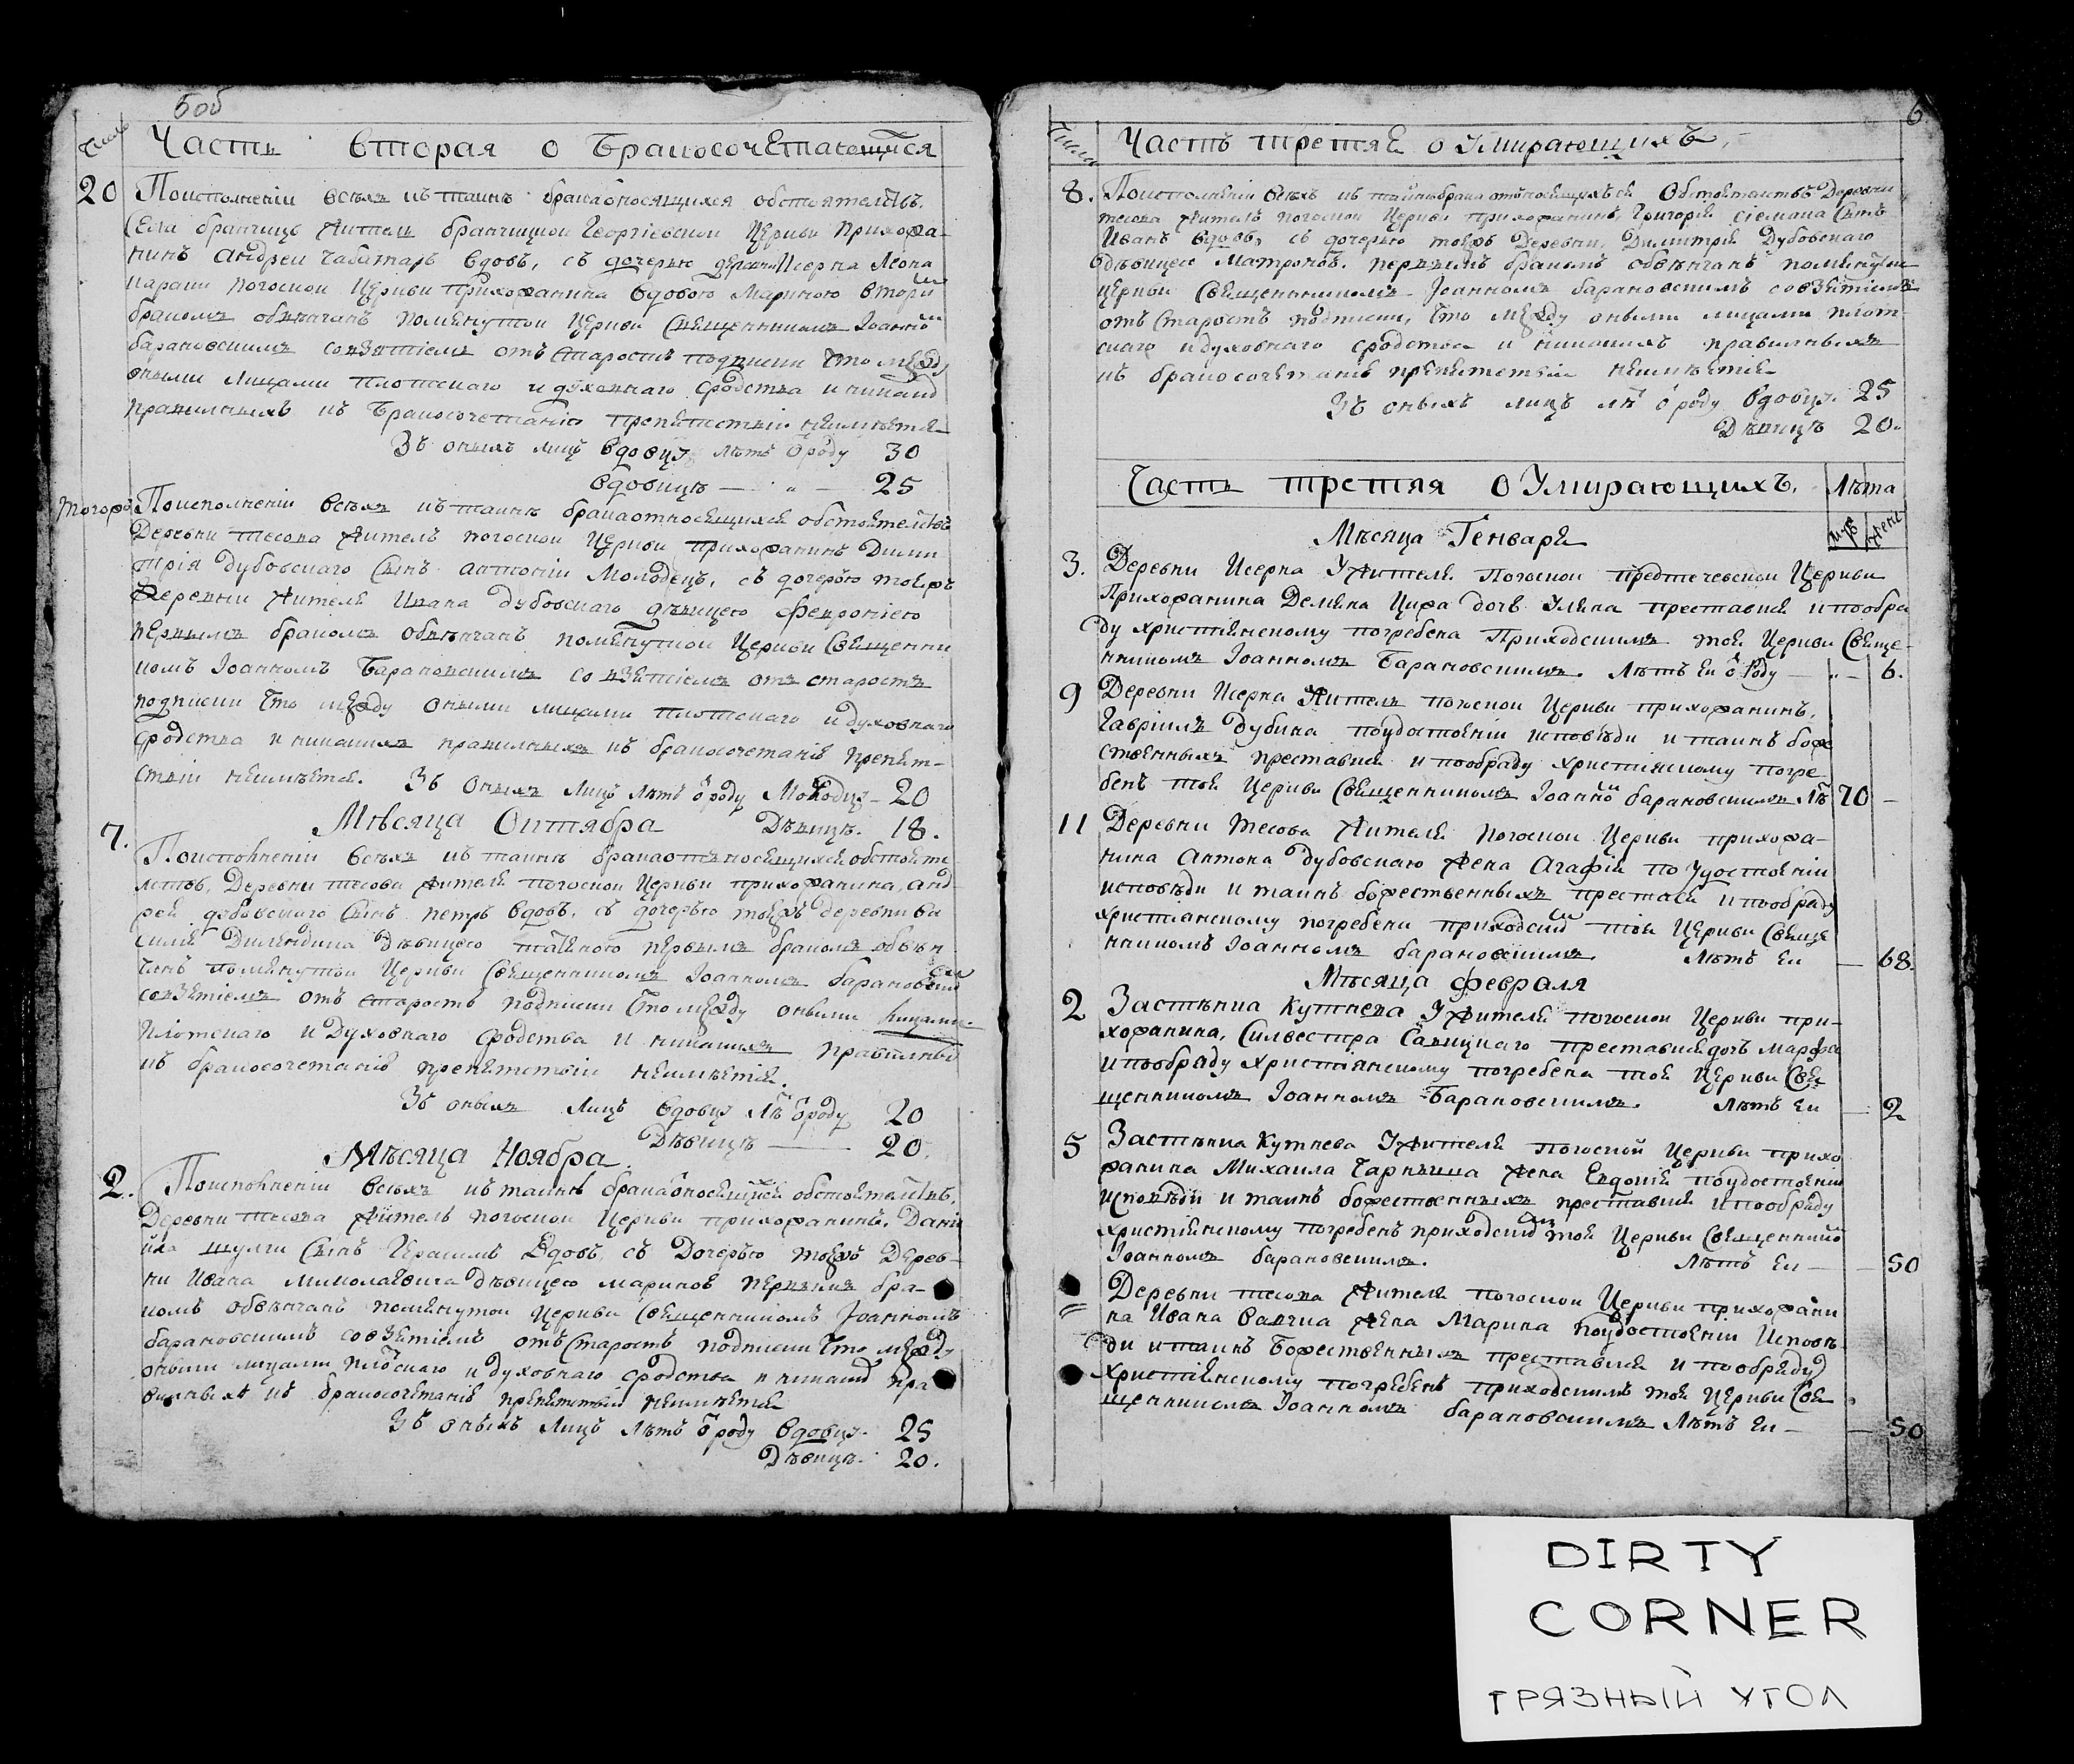 5об
Число
Часть вторая о Бракосочетающихся
20 Поисполненіи всѣхъ къ таинѣ бракаотносящихся обстоятелствъ.
Села бранчицъ Житель бранчицкои Георгіевскои Церкви Прихожа-
нинъ Андреи Чаботарь вдовъ, съ дочерью деревни Исерна Леона
парани погоскои Церкви Прихожанина вдовою Мариною вторымъ
бракомъ обвѣнчанъ помянутои Церкви Священникомъ Іоанномъ
барановскимъ совзятіемъ отъ старостъ подписки что между
оными лицами плотскаго и духовнаго сродства и никакихъ
правилныхъ къ Бракосочетанію препятствіи неимѣется
Зъ оныхъ лицъ вдовцу лѣтъ ѿроду 30
вдовицѣ — „ — 25
Тогожъ Поисполненіи всѣхъ къ таинѣ бракаотносящихся обстоятелствъ
Деревни тесова Житель погоскои Церкви прихожанинъ Дими
трія Дубовскаго Сынъ антоніи Молодецъ, съ дочерью тояжъ
Деревни Жителя Ивана Дубовскаго дѣвицею Февроніею
первымъ бракомъ обвѣнчанъ помянутои Церкви Священни
комъ Іоанномъ Барановскимъ совзятіемъ отъ старостъ
подписки что между оными лицами плотскаго и духовнаго
сродства и никакихъ правилныхъ къ бракосочетанію препят-
ствіи неимѣется. Зъ оныхъ Лицъ лѣтъ ѿроду Молодцу — 20
Мѣсяца Октября Дѣвицѣ. 18.
7. Поисполненіи всѣхъ къ таинѣ бракаотносящихся обстояте
лствъ, Деревни тесова жителя погоскои Церкви прихожанина, анд
рея дубовскаго Сынъ петръ вдовъ, съ дочерью тояжъ деревни Ва
силія Дѣвицею первымъ бракомъ обвѣн
чанъ помянутои Церкви Священникомъ Іоанномъ барановскимъ
совзятіемъ отъ старостъ подписки что между оными лицами
плотскаго и Духовнаго сродства и никакихъ правилныхъ
къ бракосочетанію препятствіи неимѣется.
Зъ оныхъ Лицъ вдовцу Лѣтъ ѿроду 20
Дѣвицѣ — 20.
Мѣсяца Ноября
2. Поисполненіи всѣхъ къ таинѣ бракаотносящихся обстоятелствъ,
Деревни тесова Житель погоскои Церкви прихожанинъ. Дани
ила шулги Сынъ Герасимъ Вдовъ, съ Дочерью тояжъ Дерев-
ни Ивана Миколаевича дѣвицею мариною первымъ бра-
комъ обвѣнчанъ помянутои Церкви Священникомъ Іоанномъ
барановскимъ совзятіемъ отъ Старостъ подписки Что между
оными лицами плотскаго и духовнаго сродства и никакихъ пра
вилныхъ къ бракосочетанію препятствіи неимѣется
Зъ оныхъ Лицъ лѣтъ ѿроду вдовцу. 25
Дѣвицѣ. 20.
6
Числа
Часть третяя о Умирающихъ
8. Поисполненіи всѣхъ къ таинѣбрака относящихъся Обстоятелствъ Деревни
тесова Житель погоскои Церкви прихожанинъ, Григорія Сынъ
Иванъ вдовъ, съ дочерью тояжъ Деревни, Димитрія Дубовскаго
дѣвицею Матроною. первымъ бракомъ обвѣнчанъ помянутои
церкви Священникомъ Іоанномъ барановскимъ совзятіемъ
отъ Старостъ подписки, что между оными лицами плот-
скаго и духовнаго сродства и никакихъ правилныхъ
къ бракосочетанію препятствіи неимѣется
Зъ оныхъ лицъ лѣтъ ѿроду Вдовцу. 25
Дѣвицѣ 20.
Часть третяя о Умирающихъ. Лѣта
Мѣсяца Генваря муж женс
3. Деревни Исерна Жителя Погоскои предтечевскои Церкви
Прихожанина Демяна Цира дочь Уляна преставися ипообря
ду христіянскому погребена Приходскимъ тоя Церкви Свяще-
нникомъ Іоанномъ Барановскимъ. Лѣтъ Еи ѿ Роду — „ — 6.
9 Деревни Исерна Житель погоскои Церкви прихожанинъ,
Гавріилъ Дубина поудостоеніи исповѣди и таинъ боже
ственныхъ преставися и пообряду христіянскому погре
бенъ тоя Церкви Священникомъ Іоанномъ барановскимъ Лѣ 70 —
11 Деревни тесова Жителя погоскои Церкви прихожа-
нина Антона Дубовскаго Жена Агафія по Удостоеніи
исповѣди и таинъ божественныхъ преставися ипообряду
христіянскому погребена приходскимъ тоя Церкви Свяще
нникомъ Іоанномъ барановскимъ Лѣтъ Еи — 68.
Мѣсяца февраля
2 Застѣнка Кутнева Жителя погоскои Церкви при-
хожанина, Силвестра Савицкаго преставися дочь Марфа
ипообряду христіянскому погребена тоя Церкви Свя
щенникомъ Іоанномъ Барановскимъ. Лѣтъ Еи — 2
5 Застѣнка Кутнева Жителя погоской Церкви прихо
жанина Михаила Чарныша Жена Евдокія поудостоеніи
исповѣди и таинъ божественныхъ преставися ипообряду
христіянскому погребенъ приходскимъ тоя Церкви Священникомъ
Іоанномъ барановскимъ. Лѣтъ Еи — 50
Деревни тесова Жителя погоскои Церкви прихожани
на Ивана Жена Марина Поудостоеніи Исповѣ
ди и таинъ Божественныхъ преставися и пообряду
христіянскому погребенъ приходскимъ тоя Церкви Свя
щенникомъ Іоанномъ барановскимъ Лѣтъ Еи — 50
DIRTY
CORNER
ГРЯЗНЫЙ УГОЛ